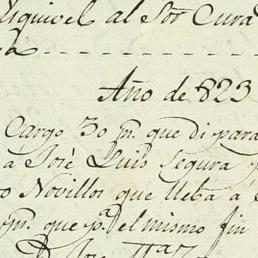 Esquivel al Sor Cura
Año de 823
Cargo 30 ps. que di para
a José Luis Segura
Novillos que lleba a
ps. que pa. el mismo fin